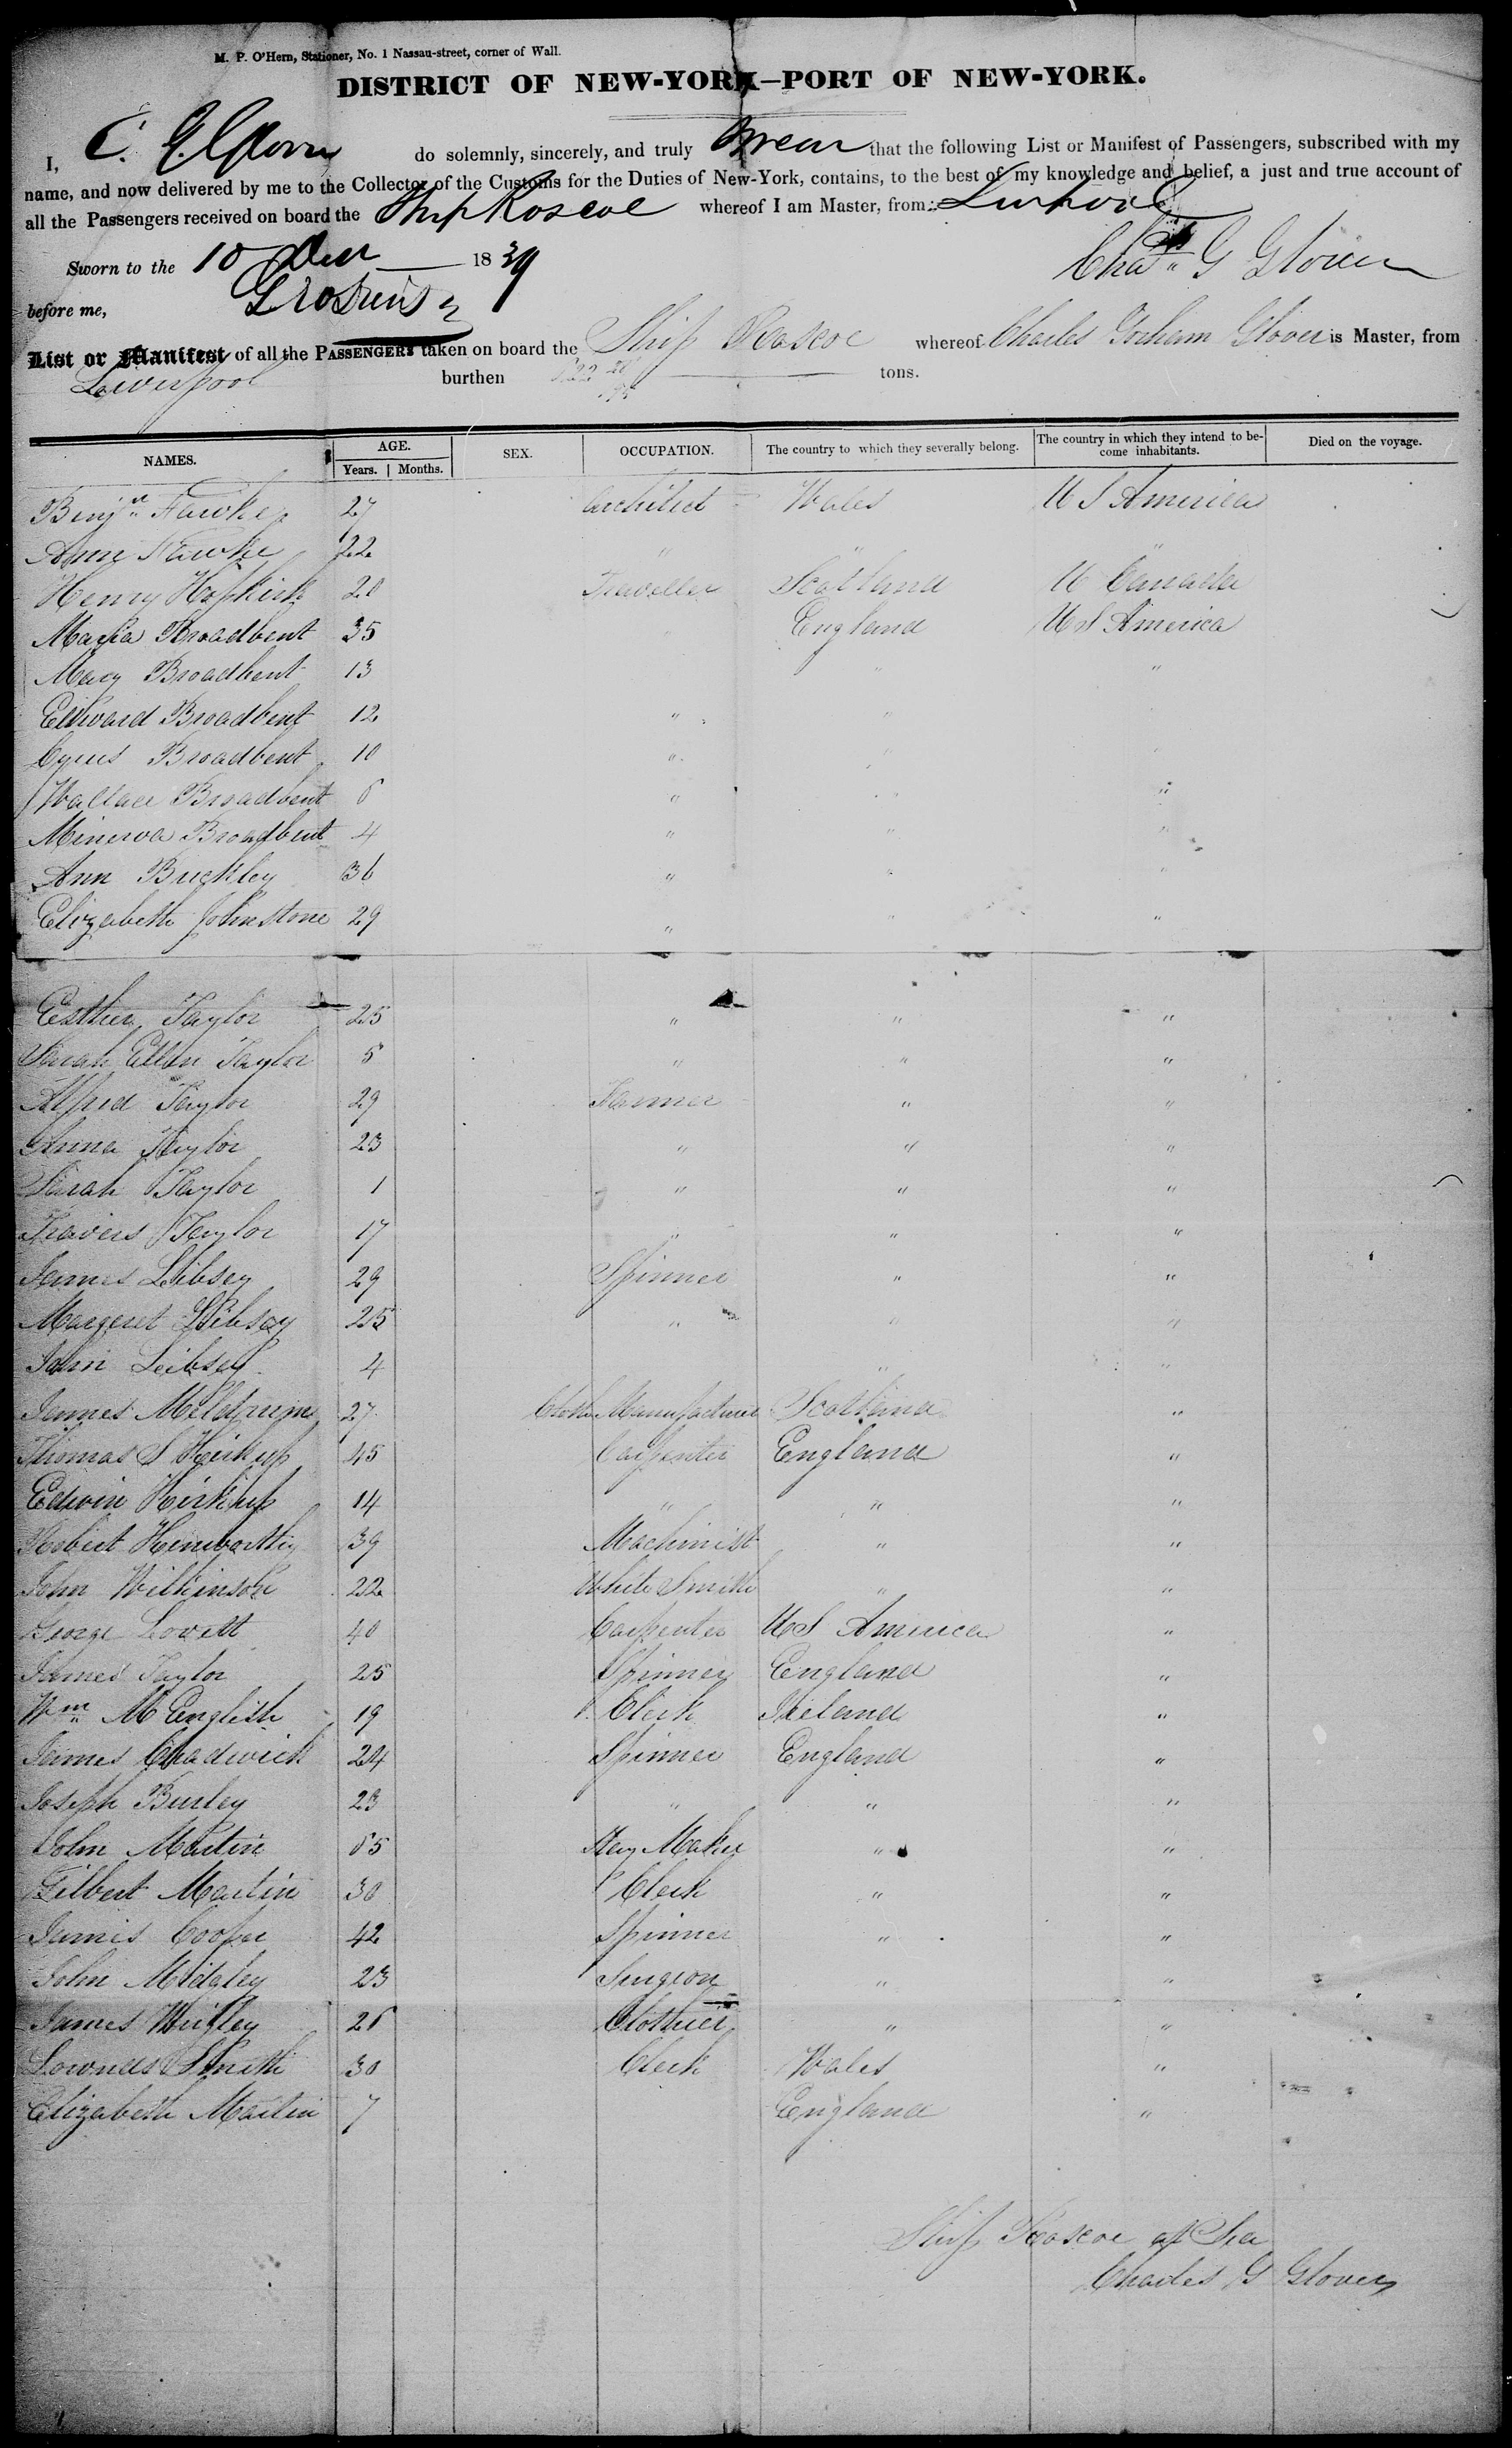 M. P. O'Hern, Stationer, No. 1 Nassau-street, corner of Wall.
DISTRICT OF NEW-YORK—PORT OF NEW-YORK.
I, C. G. Glover do solemnly, sincerely, and truly Swear that the following List or Manifest of Passengers, subscribed with my
name, and now delivered by me to the Collector of the Customs for the Duties of New-York, contains, to the best of my knowledge and belief, a just and true account of
all the Passengers received on board the Ship Roscoe whereof I am Master, from Liverpool
Sworn to the 10 Decr 1839
Chas G Glover
before me,
List or Manifest of all the PASSENGERS taken on board the Ship Roscoe whereof Charles Gorham Glover is Master, from
Liverpool burthen 622 tons.
NAMES. AGE. Years. Months. SEX. OCCUPATION. The country to which they severally belong. The country in which they intend to become inhabitants. Died on the voyage.
Benjn Fawke 27 Architect Wales U S America
Anne Fawke 22 " " "
Henry Hopkirk 20 Traveller Scotland U Canada
Maria Broadbent 35 England U S America
Mary Broadbent 13 " "
Edward Broadbent 12 " "
Cyrus Broadbent 10 " " "
Wallace Broadbent 6 " " "
Minerva Broadbent 4 " " "
Ann Buckley 36 " " "
Elizabeth Johnstone 29 " " "
Esther Taylor 25 " " "
Sarah Ellen Taylor 5 " " "
Alfred Taylor 29 Farmer " "
Anna Taylor 23 " " "
Sarah Taylor 1 " " "
Travers Taylor 17 " " "
James Libsey 29 Spinner " "
Margeret Libsey 25 " " "
John Leibsey 4 " "
James Meldrum 27 Cloth Manufacturer Scotland "
Thomas S Kirkup 45 Carpenter England "
Edwin Kirkup 14 " " "
Robert Kenworthy 39 Machinist " "
John Wilkinson 22 White Smith " "
George Lovett 40 Carpenter U S America "
James Taylor 25 Spinner England "
Wm McEnglish 19 Clerk Ireland "
James Chadwick 24 Spinner England "
Joseph Burley 23 " " "
John Martin 65 Key Maker " "
Filbert Martin 30 Clerk " "
James Cooper 42 Spinner " "
John Midgley 23 Surgeon " "
James Wrigley 26 Clothier " "
Lowndes Smith 30 Clerk Wales "
Elizabeth Martin 7 England "
Ship Roscoe at Sea
Charles G Glover